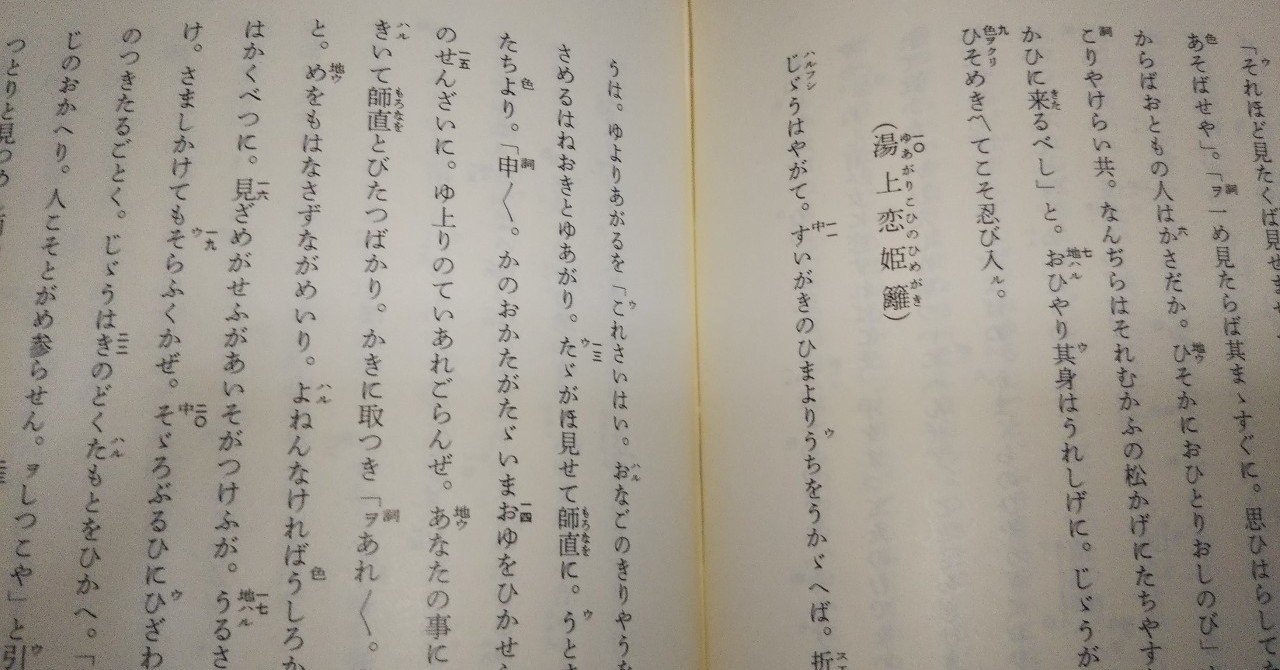 「それほど見たくば見せませ
あそばせや」。「ヲ一め見たらば其まゝすぐに。思ひはらして
からばおともの人はかさだか。ひそかにおひとりおしのび」
こりやけらい共。なんぢらはそれむかふの松かげにたちやす
かひに来るべし」と。おひやり其身はうれしげに。じゞうが
ひそめき〳〵てこそ忍び入ル。
(湯上恋姫籬)
じゞうはやがて。すいがきのひまよりうちをうかゞへば。折
うは。ゆよりあがるを「これさいはい。おなごのきりやうを
さめるはねおきとゆあがり。たゞがほ見せて師直に。うとま
たちより。「申〳〵。かのおかたがたゞいまおゆをひかせら
のせんざいに。ゆ上りのていあれごらんぜ。あなたの事に
きいて師直とびたつばかり。かきに取つき「ヲあれ〳〵。
と。めをもはなさずながめいり。よねんなければうしろか
はかくべつに。見ざめがせふがあいそがつけふが。うるさ
け。さましかけてもそらふくかぜ。そゞろぶるひにひざわ
のつきたるごとく。じゞうはきのどくたもとをひかへ。「
じのおかへり。人こそとがめ参らせん。ヲしつこや」と引
つとりと見つめ